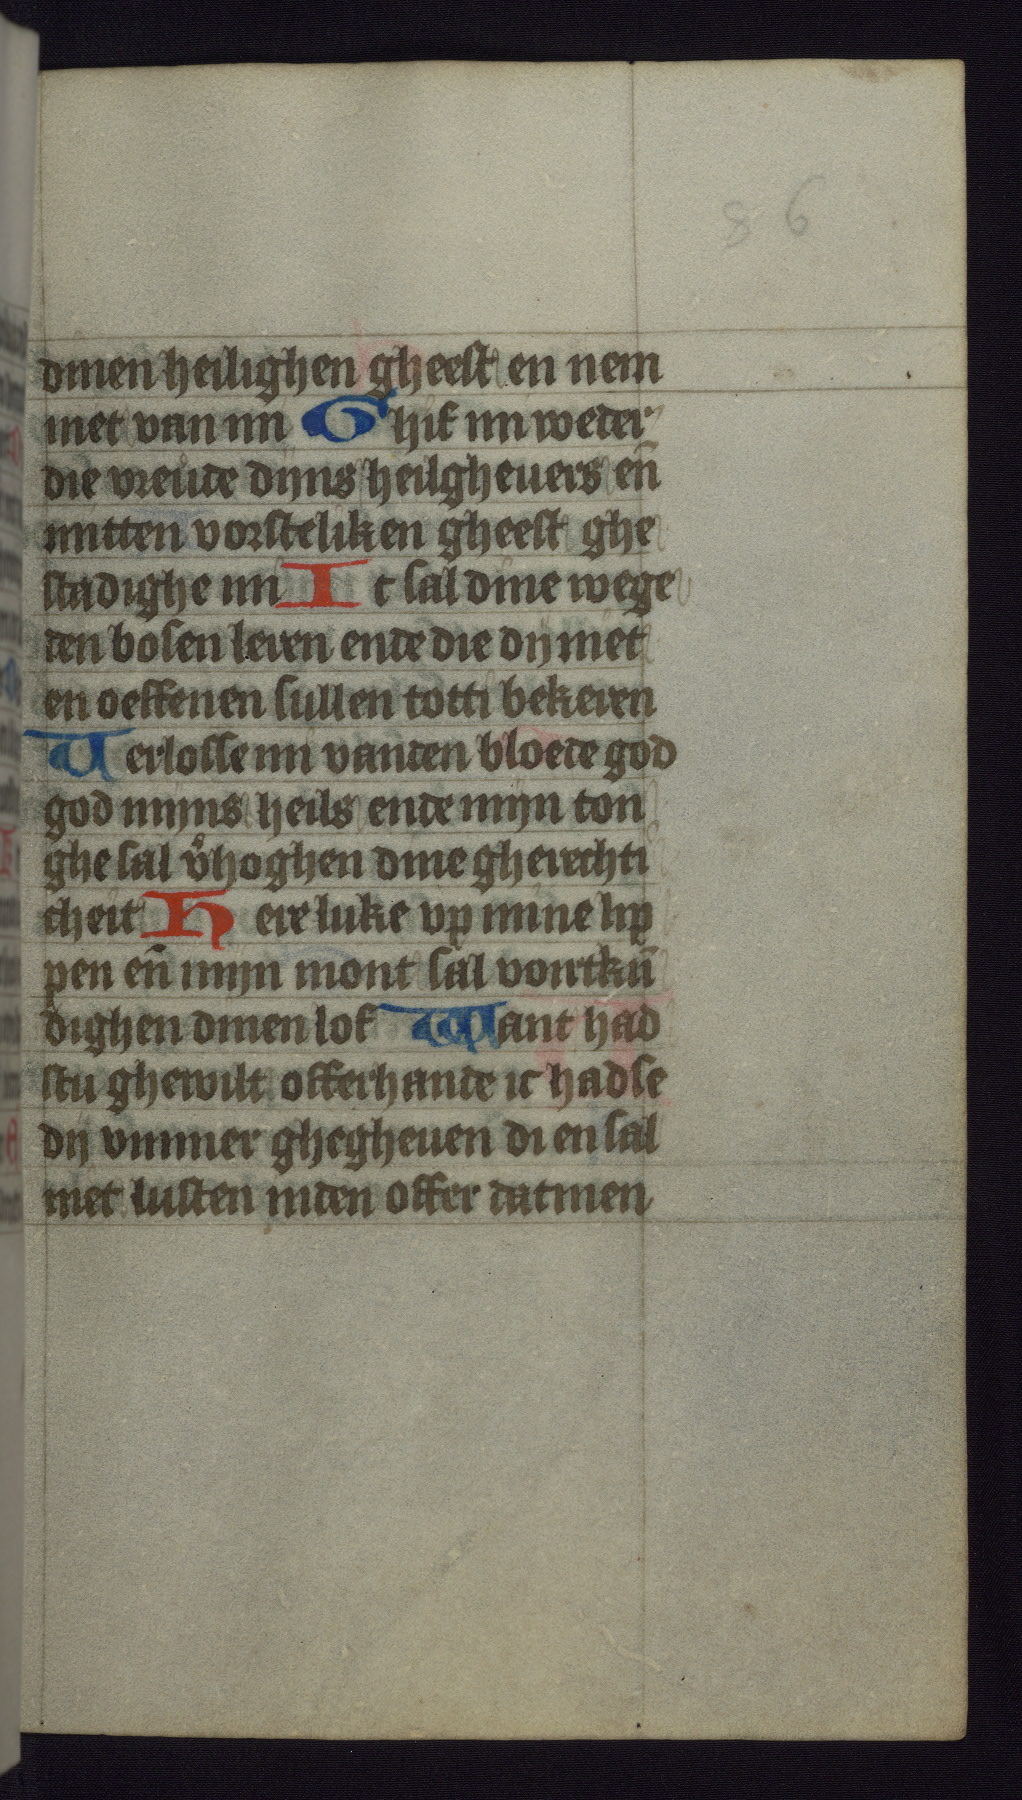 86
dinen heilighen gheest en nem
niet van mi Ghif mi weder
die vreude dijns heilgheuers en̄
mitten vorsteliken gheest ghe
stadighe mi Ic sal dine wege
den bosen leren ende die dy niet
en oeffenen sullen totti bekeren
Verlosse mi vanden bloede god
god mijns heils ende mijn ton
ghe sal v̾hoghen dine gherechti
cheit Here luke vp mine lip
pen en̄ mijn mont sal vortkū
dighen dinen lof Want had
stu ghewilt offerhande ic hadse
dij vmmer ghegheuen di en sal
niet lusten niden offer datmen